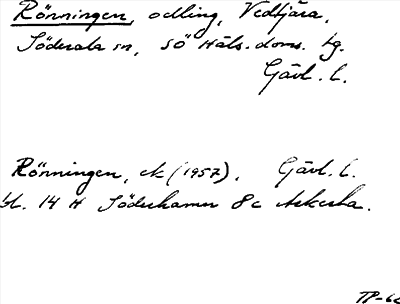 Rönningen, odling, Vedtjära,
Söderala sn, SÖ Häls. doms. tg.
Gävl. l.
Rönningen, ek (1957), Gävl. l.
bl. 14 H Söderhamn 8c Askesta.
TP-60